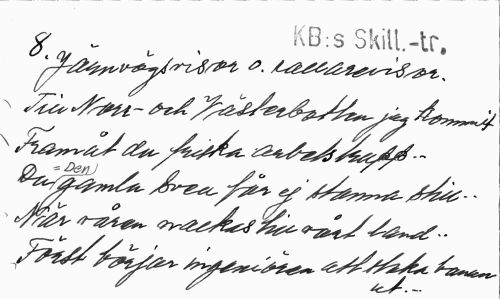 KB:s Skill.-tr.
8. Järnvägsvisor o. rallarevisor.
Till Norr- och Västerbotten jag kommit
Framåt du friska arbetstrupp..
= Den
Du gamla Svea får ej stanna still..
När våren nackas till vårt land..
Först börjar ingeniören att staka banan
ut.-